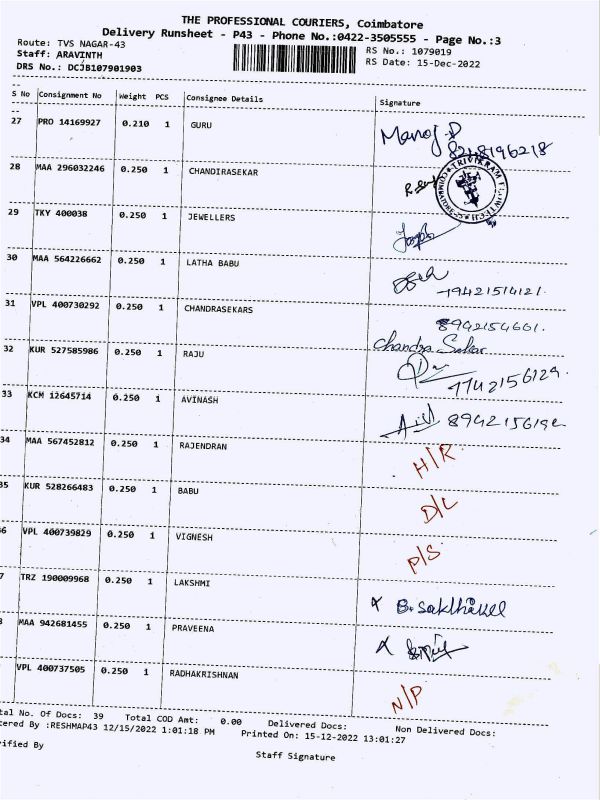 THE PROFESSIONAL COURIERS, Coimbatore
Delivery Runsheet - P43 - Phone No.:0422-3505555 - Page No.:3
Route: TVS NAGAR-43
RS No.: 1079019
Staff: ARAVINTH
RS Date: 15-Dec-2022
DRS No.: DCJB107901903
S No Consignment No Weight PCS Consignee Details Signature
27 PRO 14169927 0.210 1 GURU Manoj.P
8248196218
28 MAA 296032246 0.250 1 CHANDIRASEKAR
29 TKY 400038 0.250 1 JEWELLERS Joseph
30 MAA 564226662 0.250 1 LATHA BABU
7942151412.1.
31 VPL 400730292 0.250 1 CHANDRASEKARS 8942154661.
Chandra Sekar
32 KUR 527585986 1.000 1 RAJU
7742156129.
33 KCM 12645714 0.250 1 AVINASH
34 MAA 567452812 0.250 1 RAJENDRAN H/R
35 KUR 528266483 0.250 1 BABU D/L
6 VPL 400739829 0.250 1 VIGNESH P/S
7 TRZ 190009968 0.250 1 LAKSHMI X B. sakthivel
MAA 942681455 0.250 1 PRAVEENA X
VPL 400737505 0.250 1 RADHAKRISHNAN N/P
tal No. Of Docs: 39 Total COD Amt: 0.00 Delivered Docs: Non Delivered Docs:
tered By :RESHMAP43 12/15/2022 1:01:18 PM Printed On: 15-12-2022 13:01:27
rified By
Staff Signature